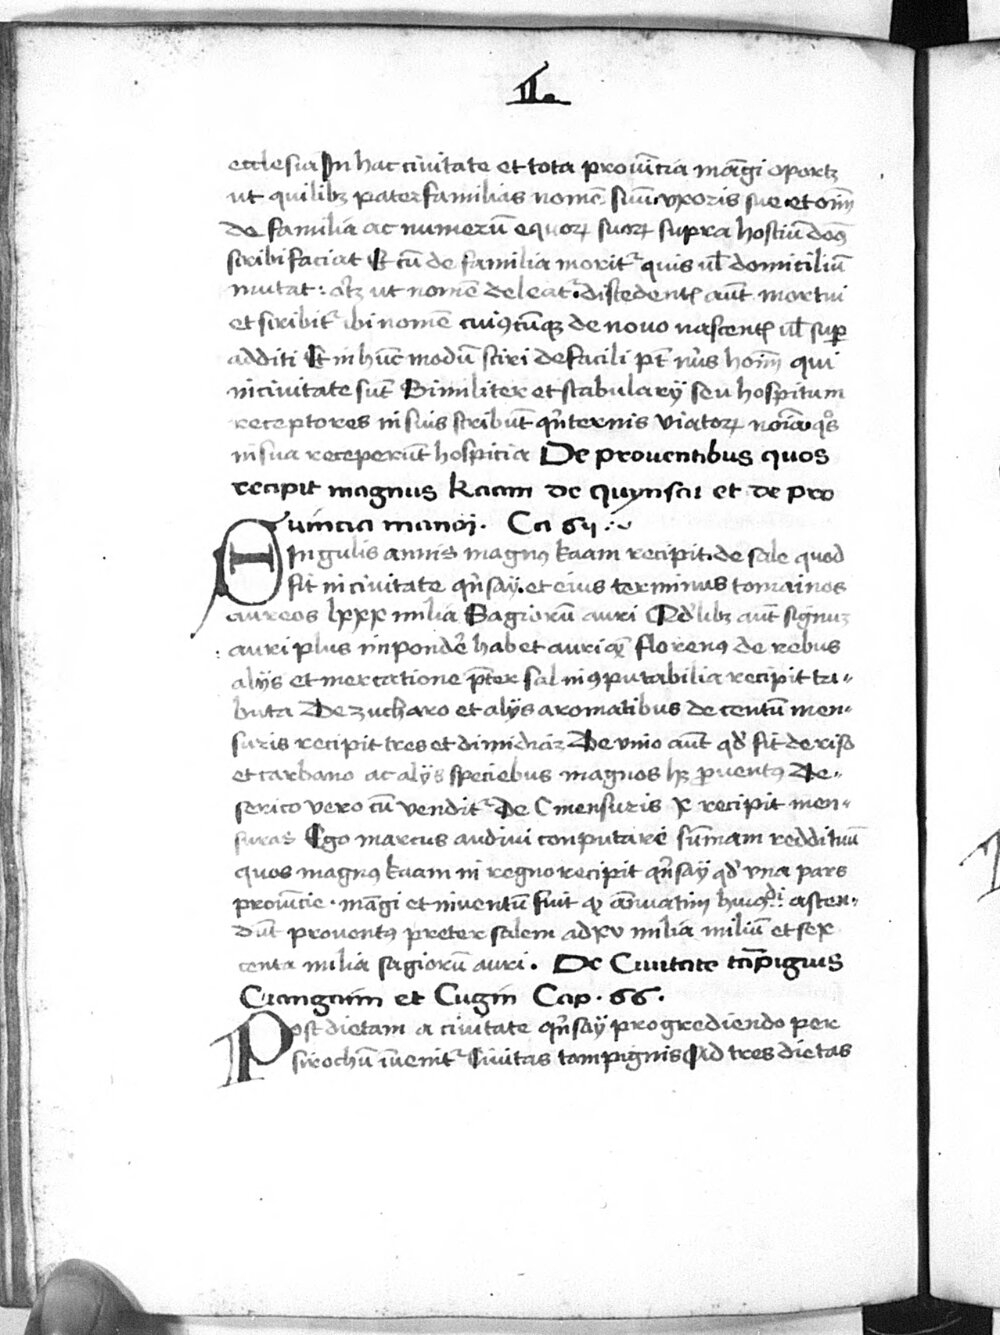 II.
ecclesia In hac ciuitate et tota prouī̄cia māgi oportz
ut quilibz paterfamilias nomē suū uxoris sue et om̄
de familia ac numerū equoꝝ suoꝝ supra hostiū dom̄
scribi faciat Et cū de familia morit᷑ quis ul̄ domiciliū
mutat : ut nomē deleat᷑ discedent aut mortui
et scribit᷑ ibi nomē cuiꝯcūqꝫ de nouo nascent ul̄ sup
additi Et in hūc modū sciri de facili pt̄ nūs hoīm qui
in ciuitate sūt Similiter et stabularij seu hospitum
receptores in suis scribūt qr̄ternis viatoꝝ noīa qos
in sua receperūt hospicia De prouentibus quos
recipit magnus kaam de quynsai et de pro
uincia mangi. Ca 65
Singulis annis magnꝰ kaam recipit de sale quod
fit in ciuitate qn̄say et eius terminus tomainos
aureos lxxx milia Sagiorū auri Qd̓libz aūt signuz
auri plus in pondē habet auri qꝫ florenꝰ de rebus
alijs et mercatione p̄ter sal inꝯputabilia recipit tri-
buta De zucharo et alijs aromatibus de centū men-
suris recipit tres et dimidiaz De vino aūt qd̓ fit de riso
et carbano ac alijs speciebus magnos hz ꝓuentꝰ De-
serico vero cū vendit᷑ De C mensuris x recipit men-
suras Ego marcus audiui computare sūmam reddituū
quos magnꝰ kaam in regno recipit qn̄say qd̓ vna pars
prouīcie māgi et inuentū fuit qꝫ ānuatim huiꝰdi ascen-
dūt prouentꝰ preter salem ad xv milia miliū et sex
centa milia sagiorū auri. De Ciuitate tāpigius
Ciangaim et Cugin Cap. 66.
Post dietam a ciuitate qn̄say progrediendo per
sirochū īuenit᷑ Ciuitas tampignis Ad tres dietas